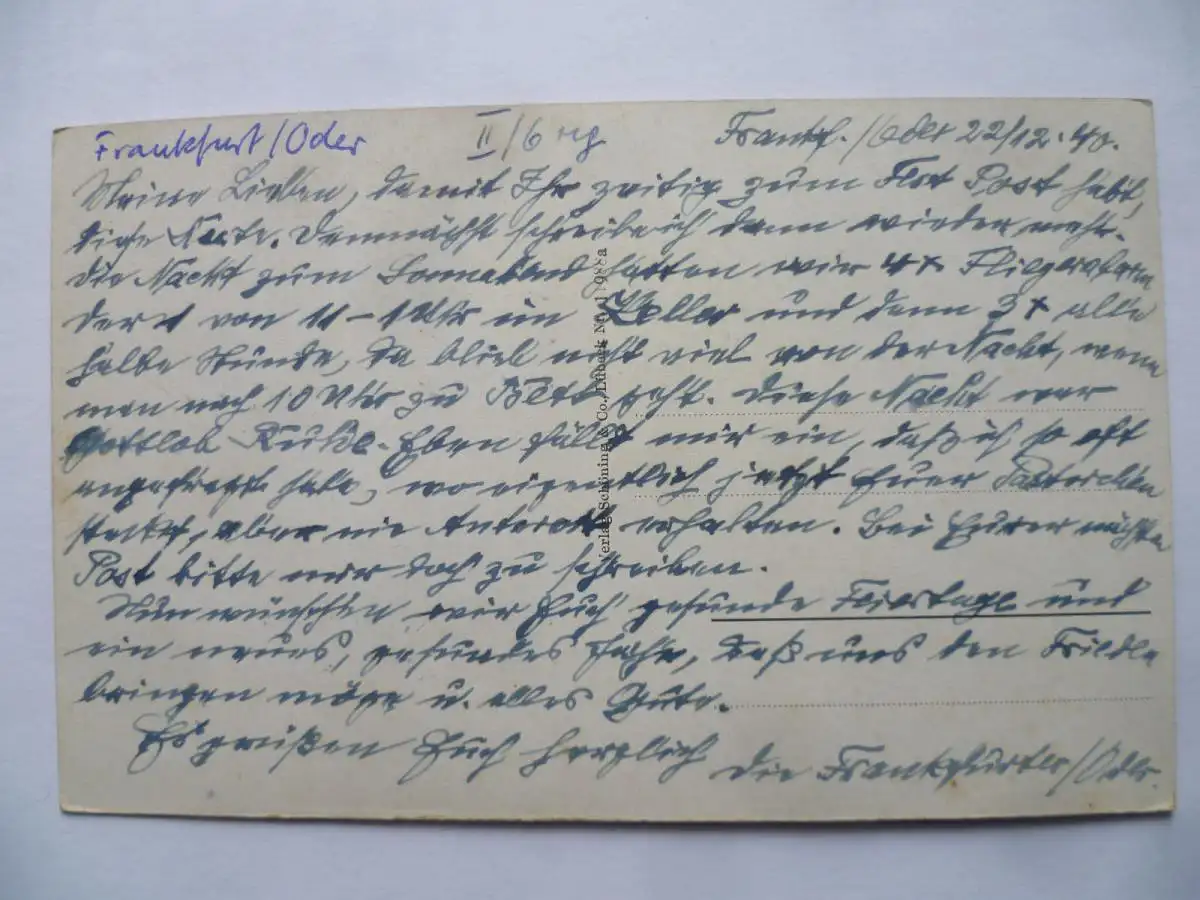 Frankfurt/Oder
II/6
Frankf./Oder 22/12.40.
Meine Lieben, damit Ihr zeitig zum Fest Post habt,
diese Karte. Demnächst schreibe ich dann wieder mehr.
Die Nacht zum Sonnabend hatten wir 4x Fliegeralarm
der 1 von 11-1 Uhr im Keller und dann 3x alle
halbe Stunde, da blieb nicht viel von der Nacht, wenn
man nach 10 Uhr zu Bett geht. Diese Nacht war
Gottlob Ruhe. Eben fällt mir ein, daß ich so oft
angefragt habe, wo eigentlich jetzt Euer
steckt, aber nie Antwort erhalten. Bei Eurer nächsten
Post bitte mir doch zu schreiben.
Nun wünschen wir Euch gesunde Feiertage und
ein neues, gesundes Jahr, daß uns den Frieden
bringen möge u. alles Gute.
Es grüßen Euch herzlich die Frankfurter/Oder.
Verlag Schöning & Co., Lübeck